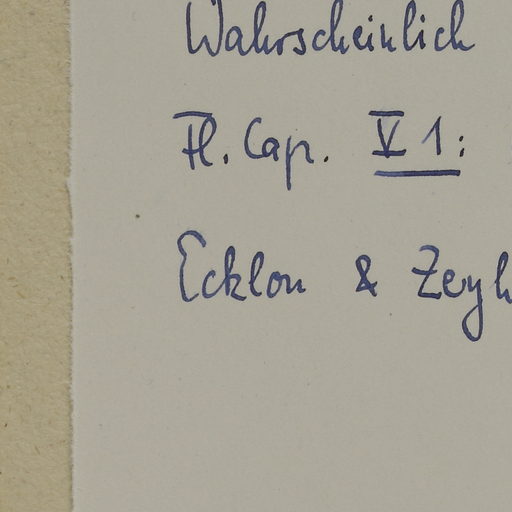 Wahrscheinlich
Fl. Cap. V 1:
Ecklon & Zeyh